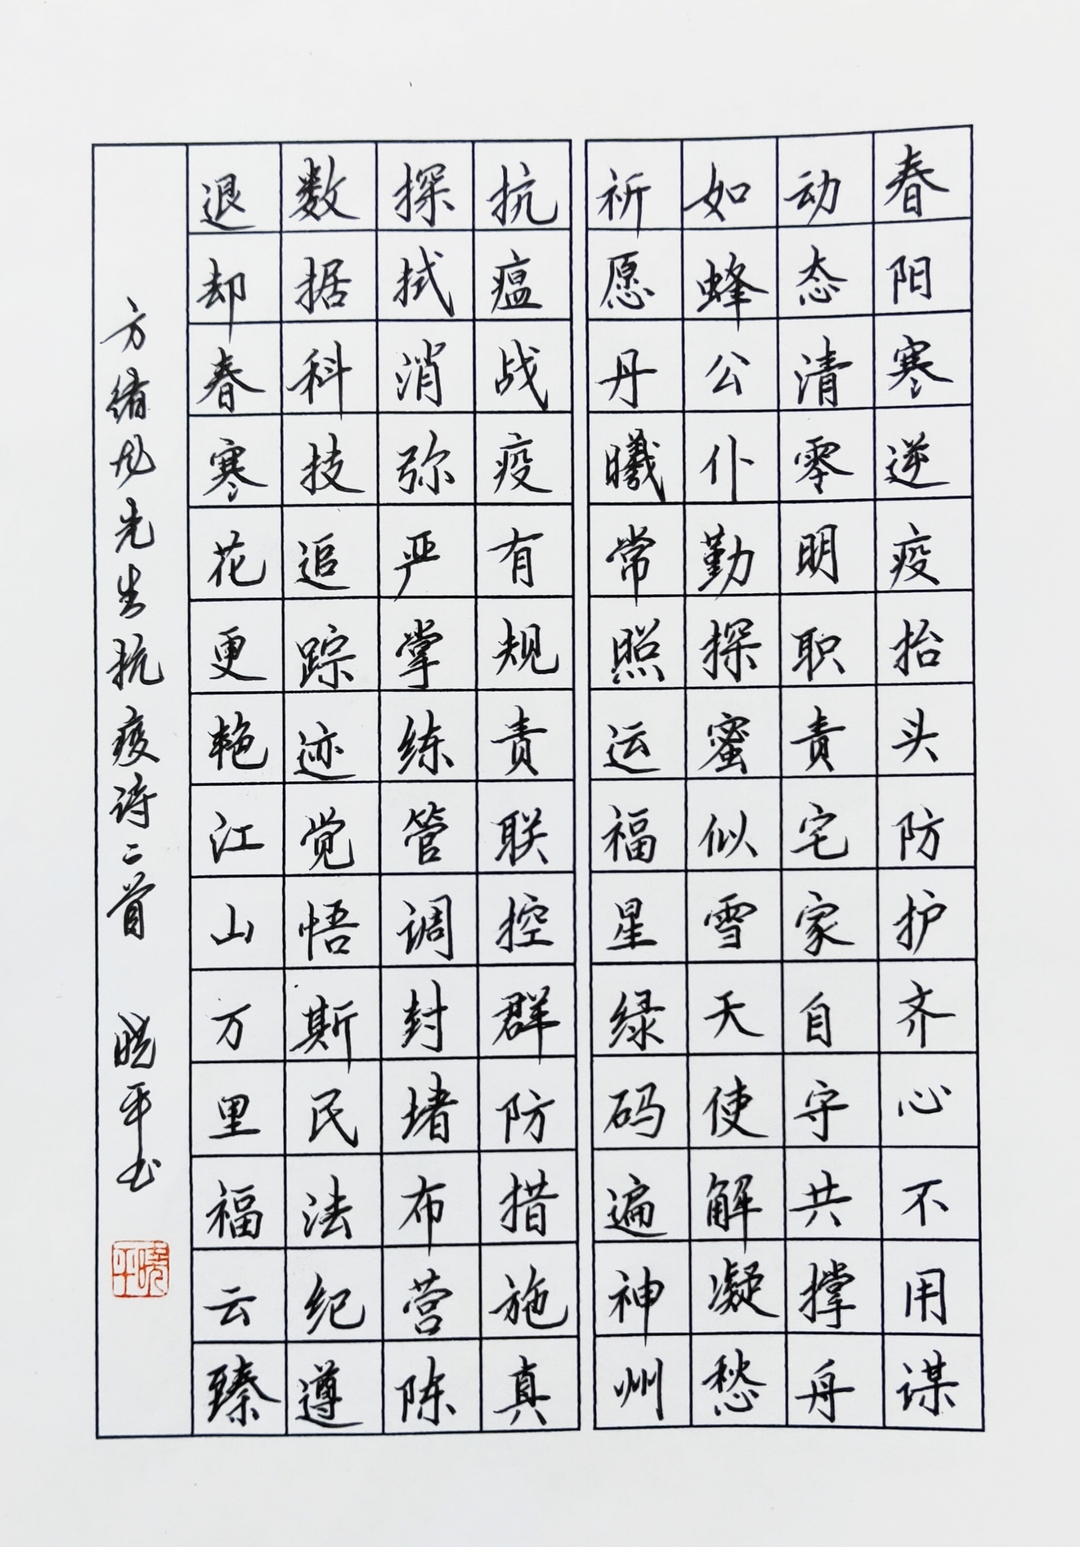 春阳寒逆疫抬头防护齐心不用谋
动态清零明职责宅家自守共撑舟
如蜂公仆勤探蜜似雪天使解凝愁
祈愿丹曦常照运福星绿码遍神州
抗瘟战疫有规责联控群防措施真
探拭消弥严掌练管调封堵布营陈
数据科技追踪迹觉悟斯民法纪遵
退却春寒花更艳江山万里福云臻
方绪先生抗疫诗二首 晓平书
晓平